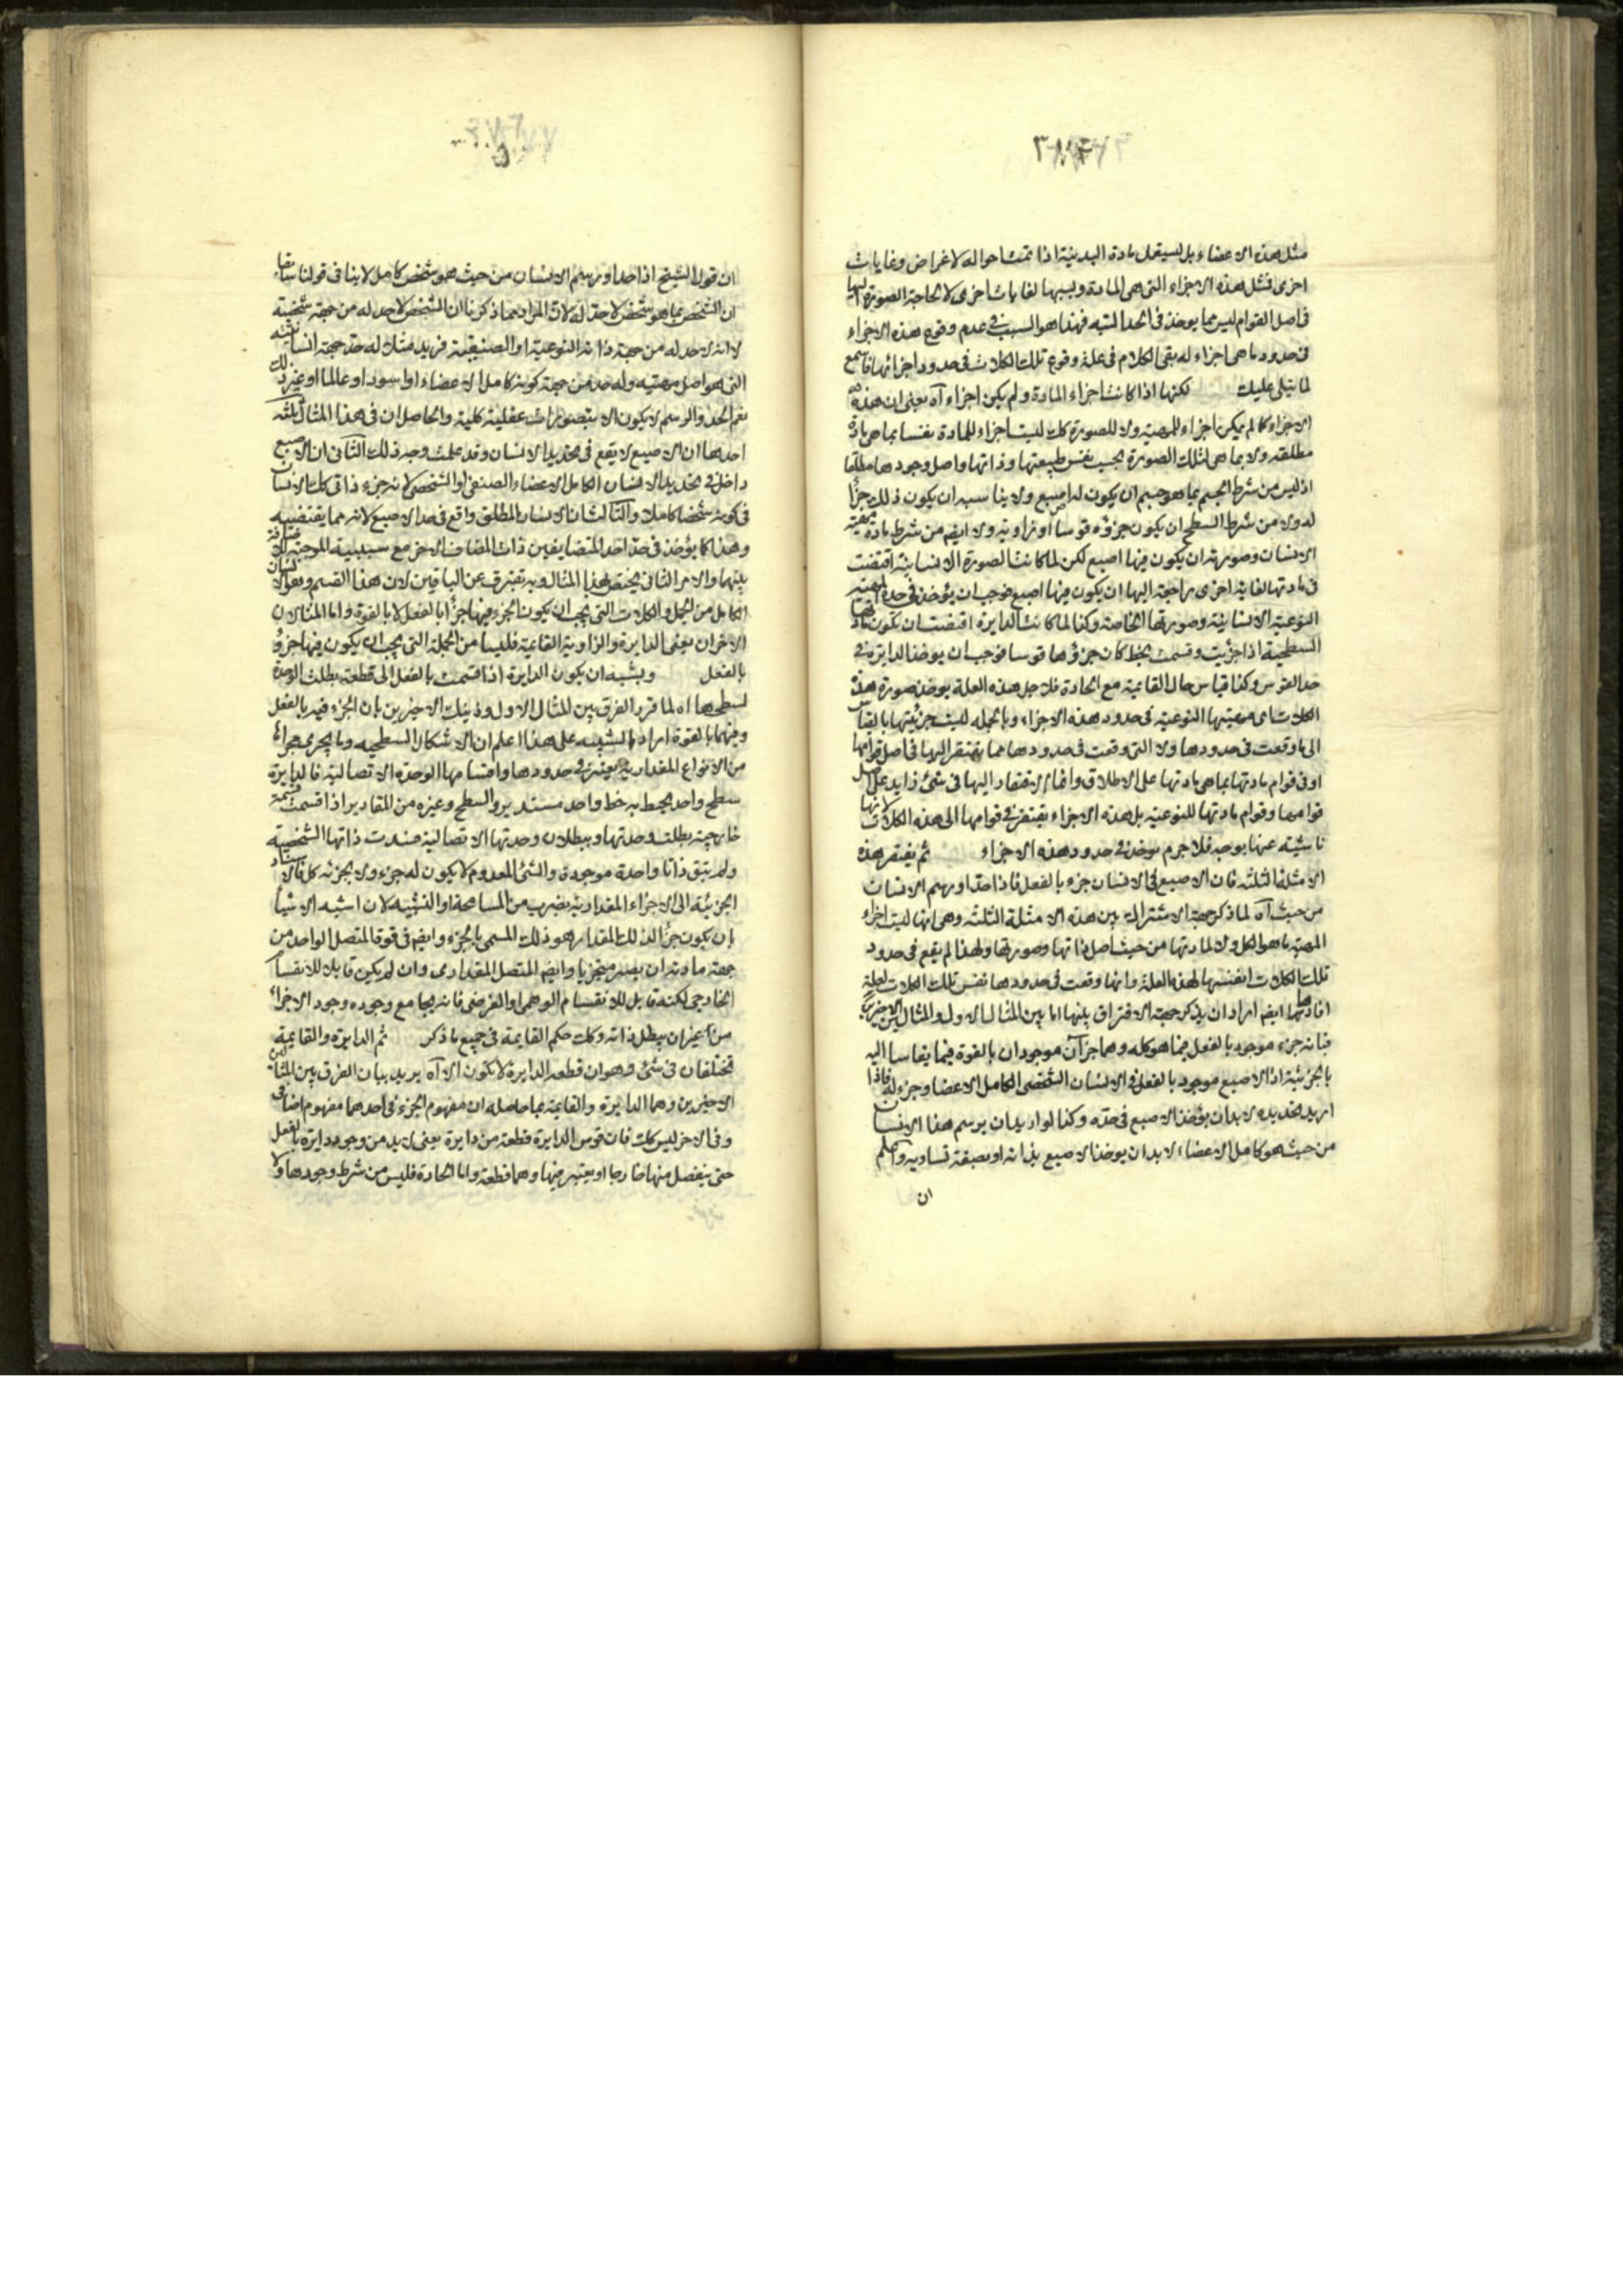 مثل هذه الاعضاء بل لسيفعل مادة البدنية اذا تمت احواله لاغراض وغايات
اخرى فمثل هذه الاجزاء التى هى للمادة وبسببها لغايات اخرى لا لحاجة الصورة اليها
فى اصل القوام ليس مما يوخذ فى الحد البته فهذا هو السبب فى عدم وقوع هذه الاجزاء
فى حدود ما هى اجزاء له بقى الكلام فى علة وقوع تلك الكلات فى حدود اجزائها فاسمع
لما يتلى عليك لكنها اذا كانت اجزاء المادة ولم يكن اجزاء آه يعنى ان هذه
الاجزاء كما لم يكن اجزاء للمهية ولا للصورة كك ليست اجزاء للمادة بنفسها بما هى مادة
مطلقه ولا بما هى لتلك الصورة بحسب نفس طبيعتها وذاتها واصل وجودها مطلقا
اذ ليس من شرط الجسم بما هو جسم ان يكون له اصبع ولا يناسبه ان يكون ذلك جزأ
له ولا من شرط السطح ان يكون جزؤه قوسا او زاوية ولا ايضم من شرط مادة مهية
الانسان وصورته ان يكون فيها اصبع لكن لما كانت الصورة الانسانية اقتضت
فى مادتها لغاية اخرى راجعة اليها ان يكون فيها اصبع فوجب ان يؤخذ فى حده المهية
النوعية الانسانية وصورتها الخاصة وكذا لما كانت الدايرة اقتضت ان يكون مادتها
السطحية اذا جزّيت وقسمت بخط كان جزؤها قوسا فوجب ان يوخذ الدايرة فى
حد القوس وكذا قياس حال القائمة مع الحادة فلاجل هذه العلة يوخذ صورة هذه
الكلات اى مهيتها النوعية فى حدود هذه الاجزاء وبالجمله ليست جزئيتها بالقياس
الى ما وقعت فى حدودها ولا التى وقعت فى حدودها مما يفتقر اليها فى اصل قوامها
او فى قوام مادتها بما هى مادتها على الاطلاق وانما الافتقار اليها فى شئ زايد على اصل
قوامها وقوام مادتها للنوعية بل هذه الاجزاء يفتقر فى قوامها الى هذه الكلات لانها
ناشية عنها بوجه فلا جرم يوخذ فى حدود هذه الاجزاء ثم يفتقر هذه
الامثلة الثلثه فان الاصبع فى الانسان جزء بالفعل فاذا حدّ او رسم الانسان
من حيث آه لما ذكر جهة الاشتراك بين هذه الامثلة الثلثه وهى انها ليست اجزاء
المهية ما هو الكل ولا لمادتها من حيث اصل ذاتها وصورتها ولهذا لم يقع فى حدود
تلك الكلات انفسها لهذه العلة وانها وقعت فى حدودها نفس تلك الكلات لعلة
افادتها ايضم اراد ان يذكر جهة الافتراق بينها اما بين المثال الاول والمثالين الاخيرين
فبانه جزء موجود بالفعل فيما هو كله وهما جزآن موجودان بالقوة فيما يقاسا اليه
بالجزئية اذ الاصبع موجود بالفعل فى الانسان الشخصى الكامل الاعضا وجزء له فاذا
اريد تحديده لابد ان يؤخذ الاصبع فى حده وكذا لو اريد ان يرسم هذا الانسان
من حيث هو كامل الاعضاء لابد ان يوخذ الاصبع بذاته او بصفة تساويه واعلم
ان
ان قول الشيخ اذا حدا ورسم الانسان من حيث هو شخص كامل لا ينافى قولنا سابقا
ان الشخص بما هو شخص لا حدّ له لان المراد مما ذكرنا ان الشخص لا حد له من جهة شخصيته
لا انه لا حد له من جهة ذاته النوعية او الصنفية فزيد مثلا له حد جهة انسانيته
التى هو اصل مهيته وله حد من جهة كونه كامل الاعضاء او اسود او عالما او غير ذلك
نعم الحد والرسم لا يكون الا بتصورات عقلية كلية والحاصل ان فى هذا المثال ثلثه
احدها ان الاصبع لا يقع فى تحديد الانسان وقد علمت وجه ذلك الثانى ان الاصبع
داخل فى تحديد الانسان الكامل الاعضاء الصنفى او الشخصى لانه جزء ذاتى لك الانسان
فى كونه شخصا كاملا والثالث ان الانسان المطلق واقع فى حد الاصبع لانه مما يقتضيه
وهذا كما يؤخذ فى حد احد المتضايفين ذات المضاف الاخر مع سببية الموجبة للاضافة
بينهما والامر الثانى يختص بهذا المثال وبه تفترق عن الباقيين لان هذا القسم وهو الانسان
الكامل من الجمل والكلات التى يجب ان يكون الجزء فيها جزأ بالفعل لا بالقوة واما المثالان
الاخران يعنى الدايرة والزاوية القائمة فليسا من الجملة التى يجب ان يكون فيها جزؤ
بالفعل ويشبه ان يكون الدايرة اذا قسمت بالفعل الى قطعة بطلت الوحدة
لسطحها اه لما قرر الفرق بين المثال الاول وذينك الاخيرين بان الجزء فيه بالفعل
وفيهما بالقوة اراد التنبيه على هذا اعلم ان الاشكال السطحيه وما يجرى مجراها
من الانواع المقدارية يعتبر فى حدودها واقسامها الوحدة الاتصالية فالدايرة
سطح واحد يحيط به خط واحد مستدير والسطح وغيره من المقادير اذا قسمت قسمة
خارجية بطلت وحدتها وببطلان وحدتها الاتصالية فسدت ذاتها الشخصية
ولم تبق ذاتا واحدة موجودة والشئ المعدوم لا يكون له جزء ولا بجزئه كل فالاسناد
الجزئية الى الاجزاء المقدارية بضرب من المسامحة او التشبيه لان اشبه الاشيأ
بان يكون جزأ لذلك المقدار هو ذلك المسمى بالجزء وايضم فى قوة المتصل الواحد من
جهة مادته ان يصير متجزيا وايضم المتصل المقدارى وان لم يكن قابلا للانقسام
الخارجى لكنه قابل للانقسام الوهمى او الفرضى فانه يجامع وجوده وجود الاجزاء
من غير ان يبطل ذاته وكك حكم القايمة فى جميع ما ذكر ثم الدايرة والقايمة
تختلفان فى شئ وهو ان قطعة الدايرة لا تكون الا آه يريد بيان الفرق بين المثالين
الاخيرين وهما الدايرة والقايمة بما حاصله ان مفهوم الجزء فى احدهما مفهوم اضافى
وفى الاخر ليس كك فان قوس الدايرة قطعة من دايرة يعنى لا بد من وجود دايرة بالفعل
حتى ينفصل منها خارجا او يعتبر فيها وهما قطعة واما الحادة فليس من شرط وجودها ولا